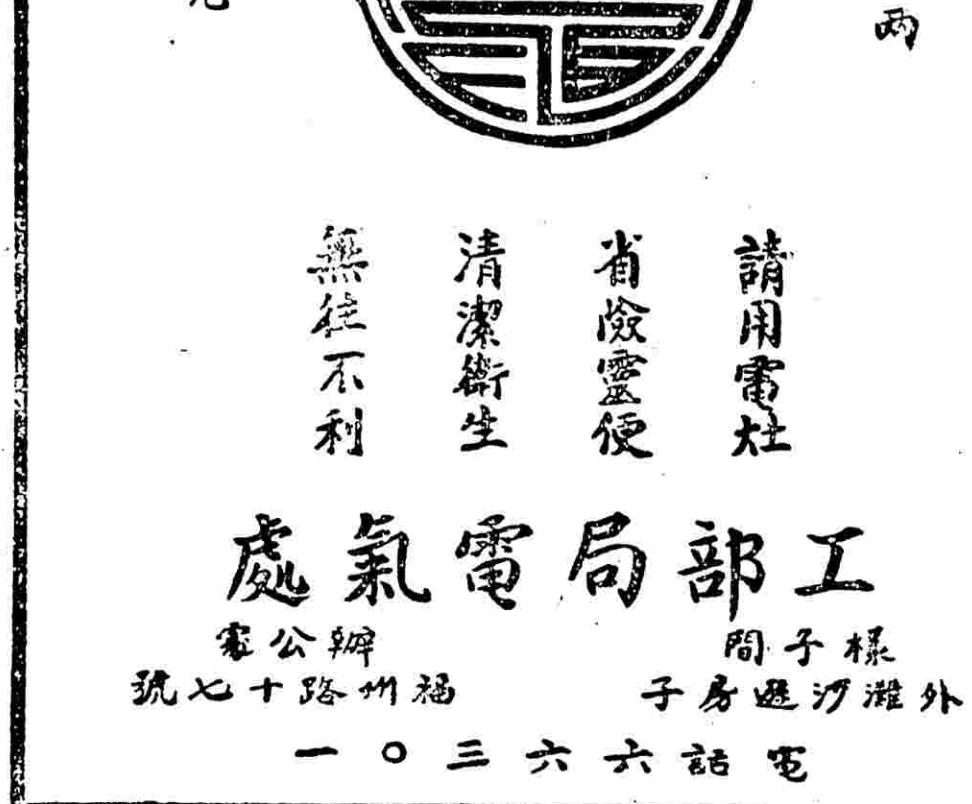 兩
請用電灶
省險靈便
清潔衛生
無往不利
工部局電氣處
樣子間
外灘沙遜房子
辦公室
福州路十七號
電話六六三〇一